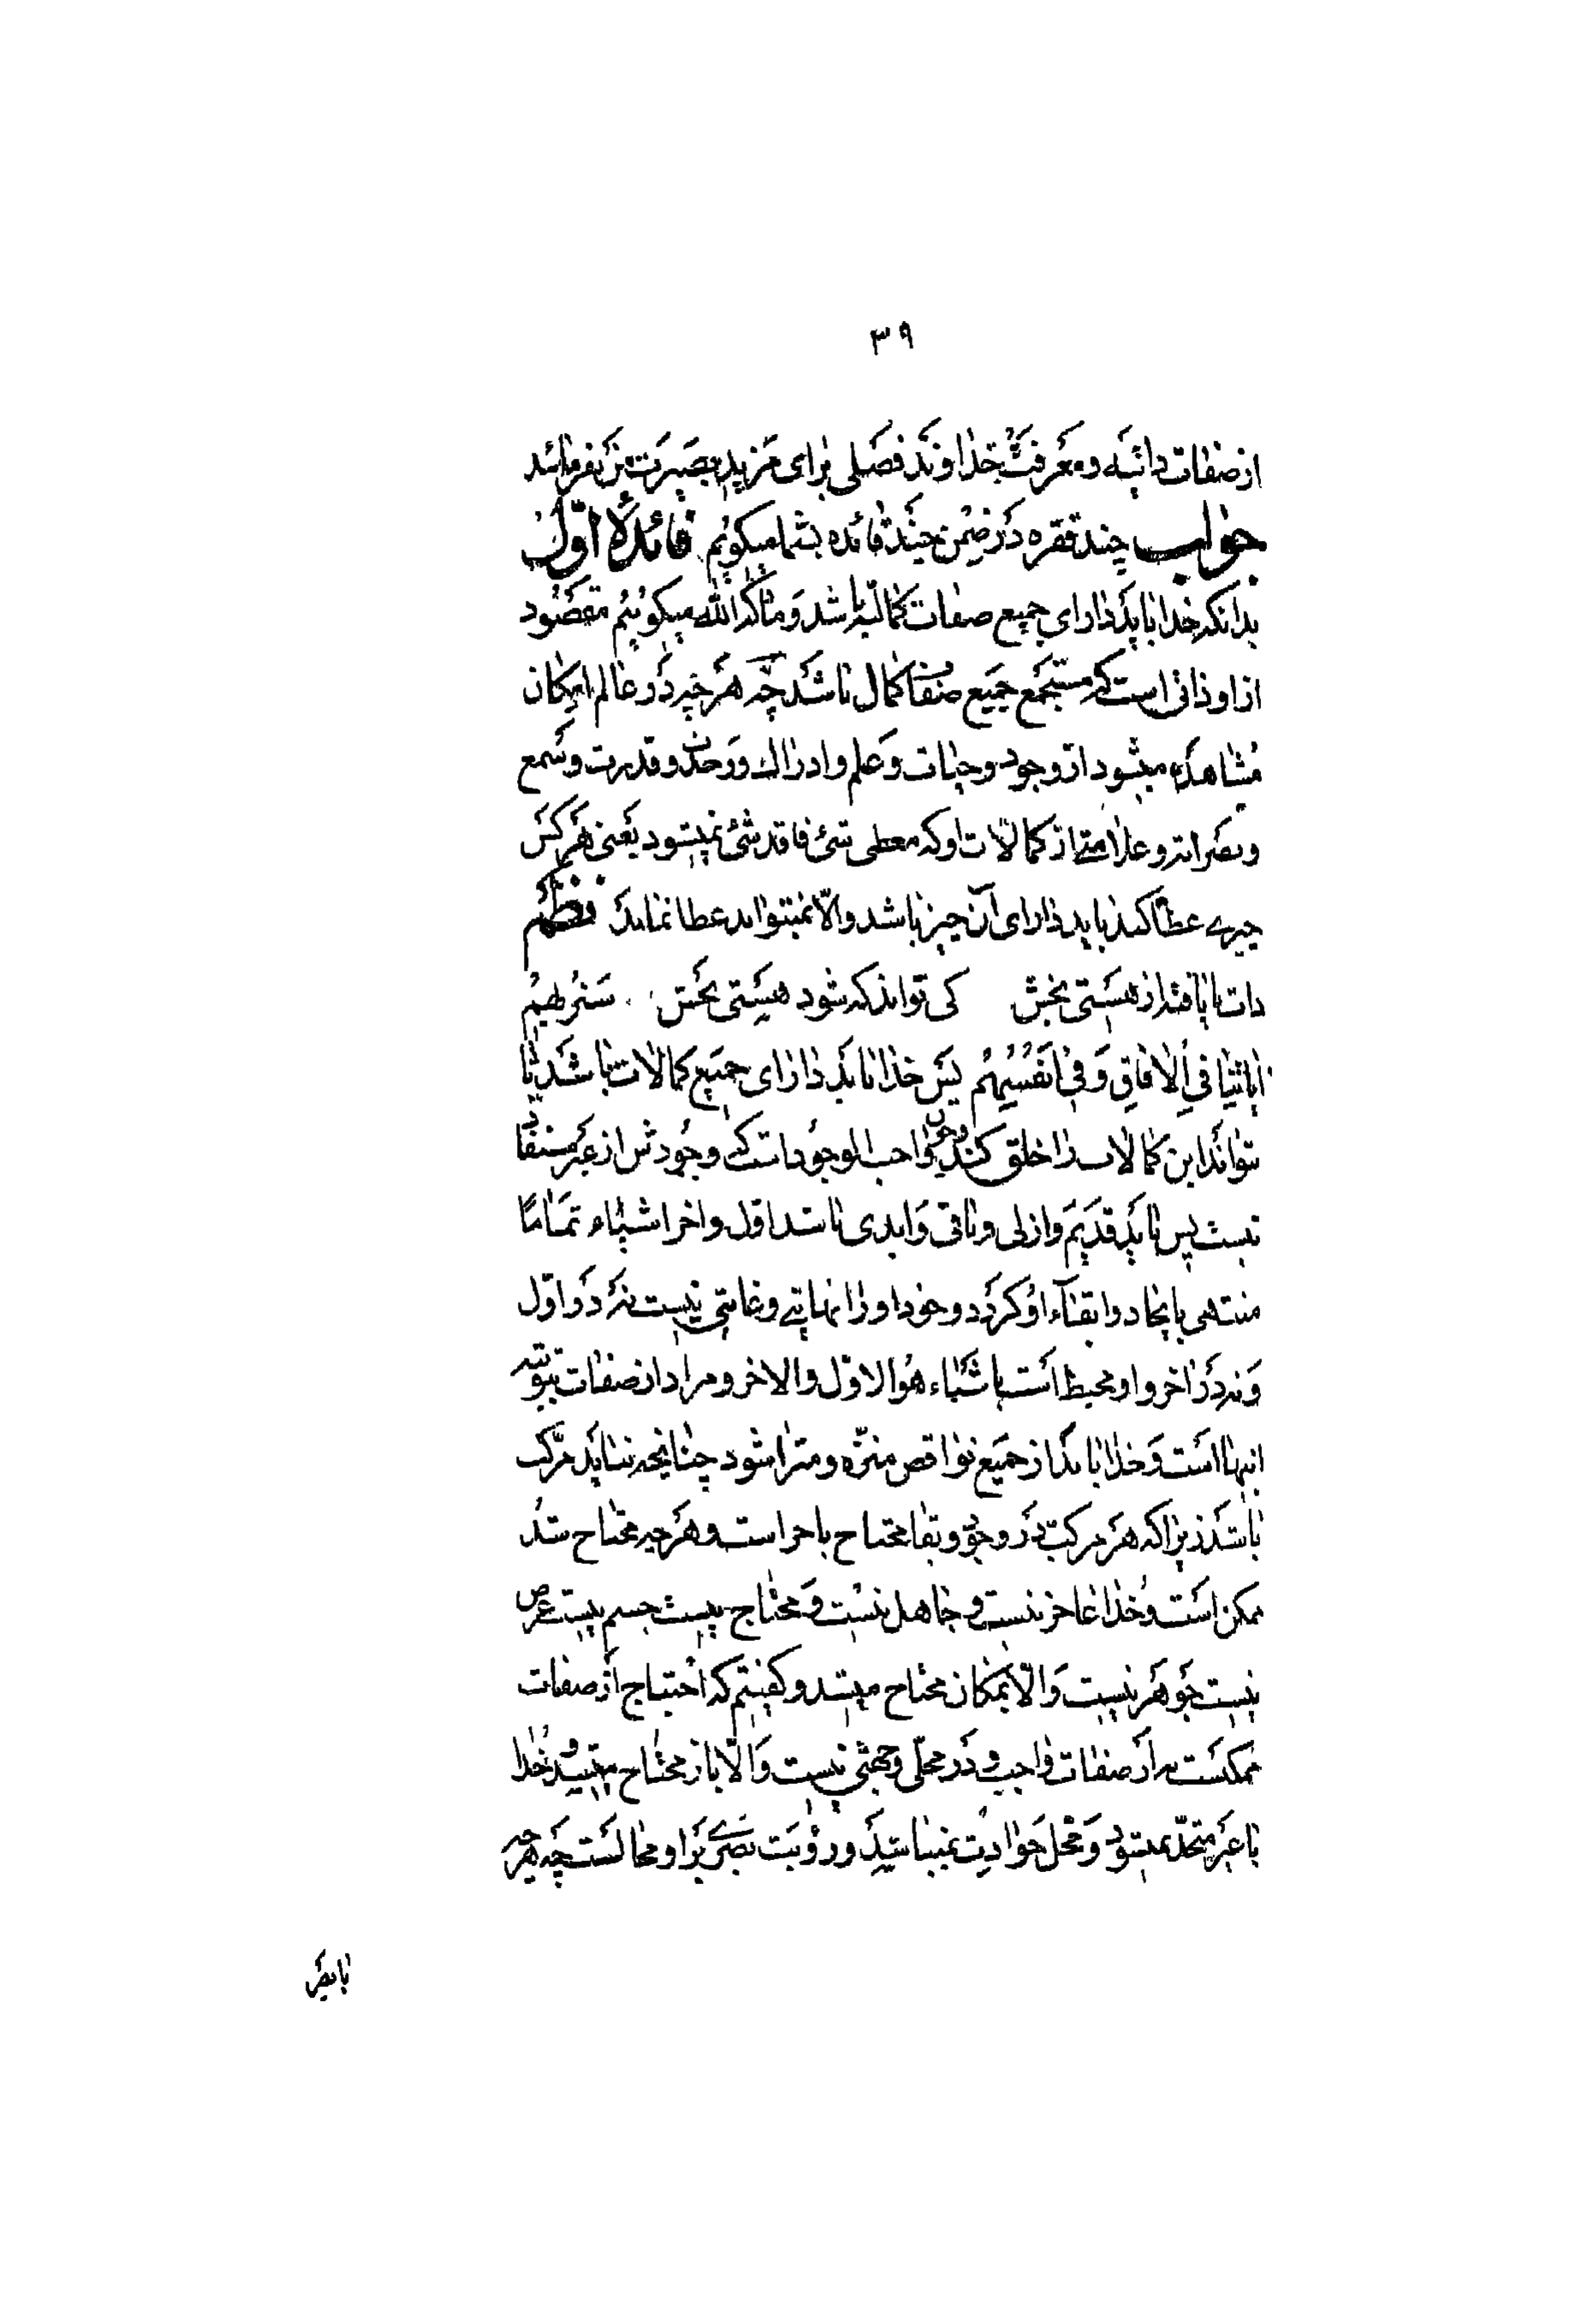 ۳۹
از صفات ذاتیه و معرفت خداوند فصلی برای مزید بصیرت من بفرمائید
جواب چند فقره در ضمن چند فائده بشما میگویم فائدهٔ اوّل
بدانکه خدا باید دارای جمیع صفات کمالیه باشد و ما که الله میگوئیم مقصود
از او ذاتی است که مستجمع جمیع صفات کمال باشد چه هر چه در عالم امکان
مشاهده میشود از وجود و حیات و علم و ادراک و وحدت و قدرت و سمع
و بصر اثر و علامتی از کمالات او که معطی شئ فاقد شئ نمیشود یعنی هر کس
چیزی عطا کند باید دارای آن چیز باشد والّا نمیتواند عطا نماید نظم
ذات نایافته از هستی بخش کی تواند که شود هستی بخش سنریهم
ایاتنا فی الافاق و فی انفسهم پس خدا باید دارای جمیع کمالات باشد تا
بتواند این کمالات را خلق کند و چون واجب الوجود است که وجودش از غیر مستفاد
نیست پس باید قدیم و ازلی و باقی و ابدی باشد اول و اخر اشیاء تماماً
منتهی بایجاد و ابقاء او گردد وجود او را نهایتی و غایتی نیست نه در اوّل
و نه در اخر و او محیط است باشیاء هو الاوّل والاخر و مراد از صفات ثبوتیه
اینها است و خدا باید از جمیع نواقص منزّه و مبرّا شود چنانچه نباید مرکب
باشد زیرا که هر مرکب در وجود و بقا محتاج باجزا است و هر چه محتاج شد
ممکن است و خدا عاجز نیست و جاهل نیست و محتاج نیست جسم نیست عرض
نیست جوهر نیست والّا بمکان محتاج میشد و گفتیم که احتیاج از صفات
ممکنست نه از صفات واجب و در محلی و جهتی نیست والّا باز محتاج میشد و خدا
با غیر متحد نمیشود و محل حوادث نمیباشد و رؤیت بصری بر او محالست چه هر چه
با بصر